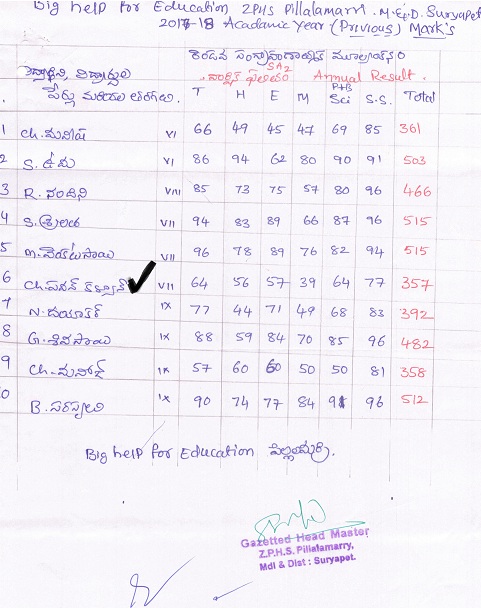 Big help For Education ZPHS Pillalamarri. M & D. Suryapet
2017-18 Acadamic year (Previous) Mark's
SA2
Annual Result.
పేర్లు మరియు తరగతి. T H E M P+B Sci S.S. Total
1 Ch. మనీష VI 66 49 45 47 69 85 361
2 S. ఉమ VI 86 94 62 80 90 91 503
3 R. నందిని VIII 85 73 75 57 80 96 466
4 S. శ్రీలత VII 94 83 89 66 87 96 515
5 VII 96 78 89 76 82 94 515
6 Ch. పవన్ కళ్యాణ్ VII 64 56 57 39 64 77 357
7 N. దయాకర్ IX 77 44 71 49 68 83 392
8 G. శివసాయి IX 88 59 84 70 85 96 482
9 Ch. మనోజ్ IX 57 60 60 50 50 81 358
10 B. IX 90 74 77 84 91 96 512
Big help for Education పిల్లలమర్రి.
Gazetted Head Master
Z.P.H.S. Pillalamarry,
Mdl & Dist : Suryapet.